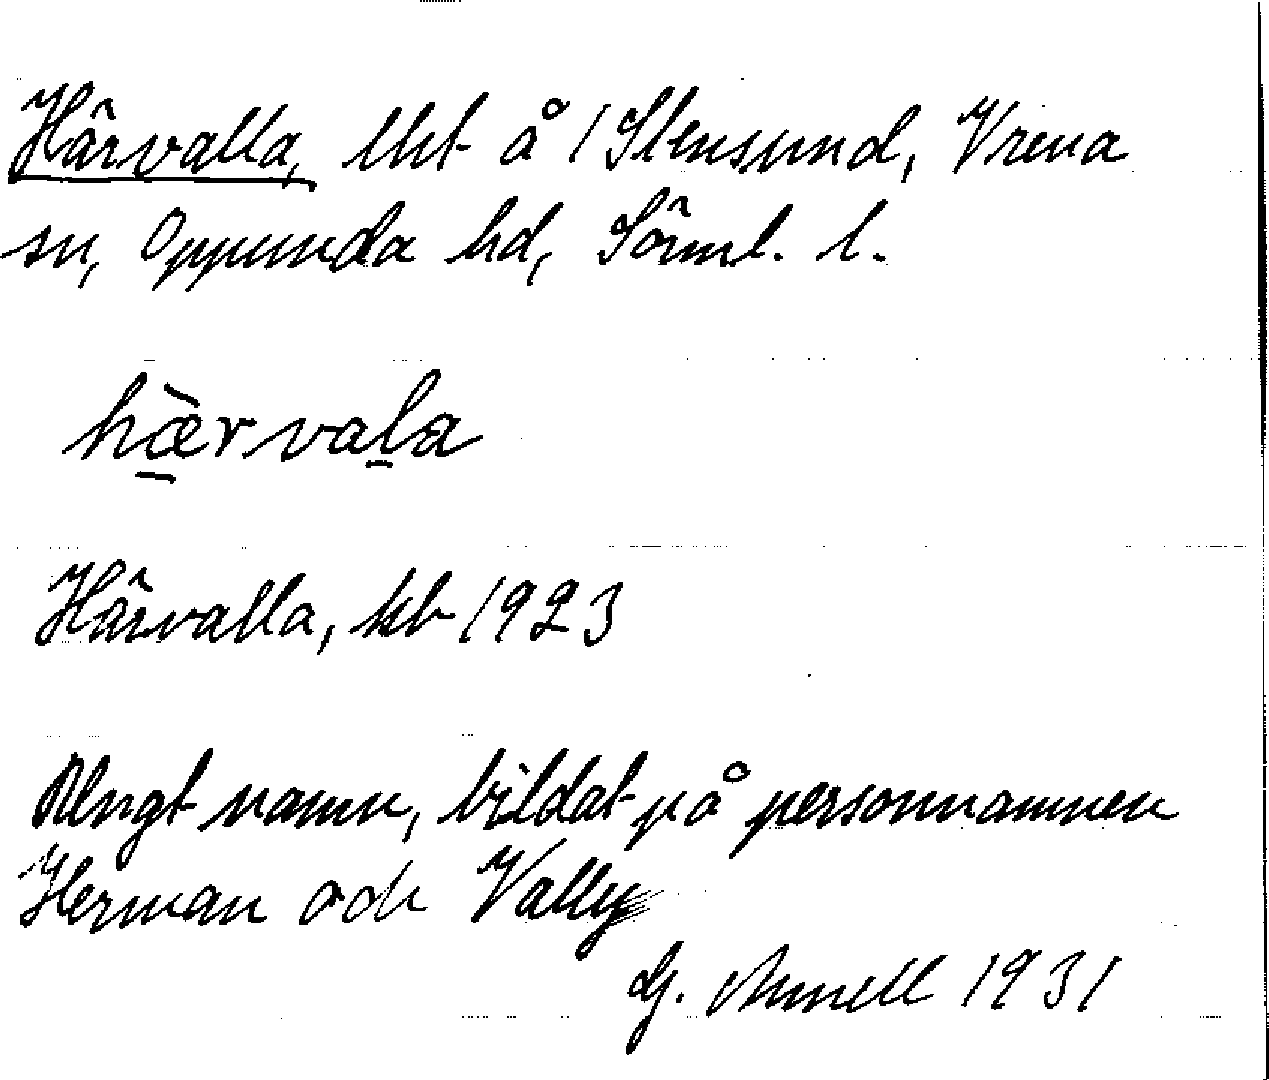 Härvalla, lht å 1 Stensund, Vrena
sn, Oppunda hd, Söml. l.
hæ̀rvala
Härvalla, kb 1923
Ungt namn, bildat på personnamnen
Herman och Vally
G. Annell 1931